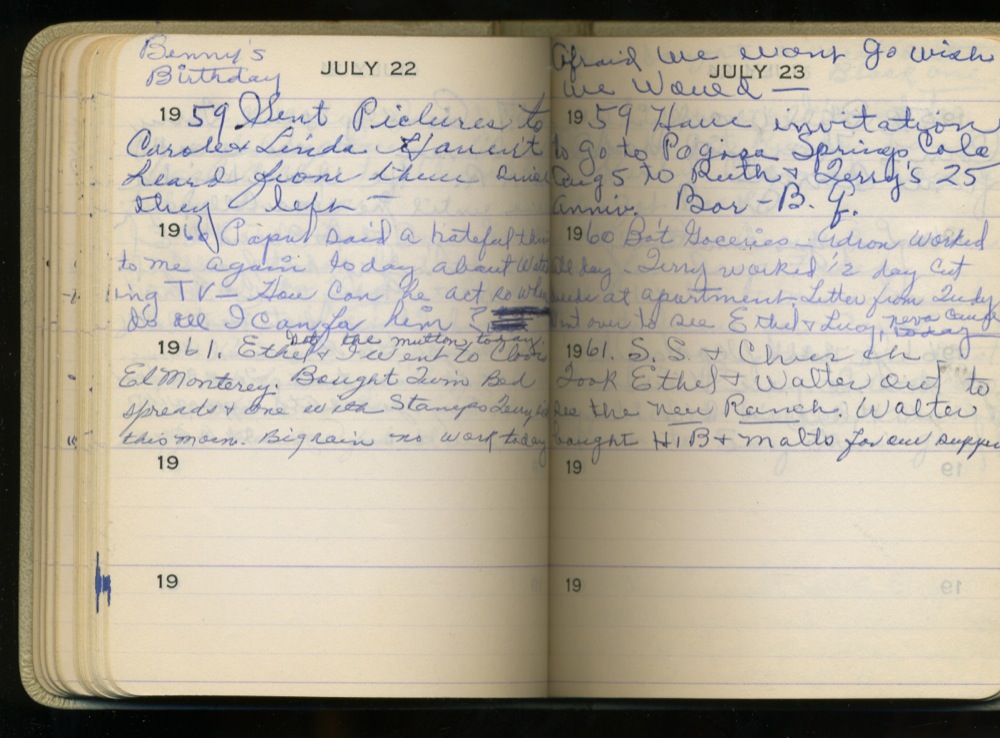 Benny's
Birthday
JULY 22
1959 Sent Pictures to
Carole & Linda Havent
heard from them since
they left —
1960 Papa said a hateful thing
to me again today about Watch
ing TV — How can he act so when
do all I can for him
1961. Ethel & I went to Clovis
El Monterey. Bought Twin Bed
spreads & one with Stamps
this morn. Big rain no work today
19
19
Afraid we wont go wish
we would —
JULY 23
1959 Have invitation
to go to Pagosa Springs Colo
Aug 5 to Ruth & Jerry's 25
anniv. Bar-B.Q.
1960 Bo't Groceries — worked
all day — Terry worked ½ day Cut
at apartment. Letter from Judy
Went over to see Ethel & Lucy, neva
today
1961. S.S. & Church —
Took Ethel & Walter out to
see the new Ranch. Walter
bought H B & malts for our supper
19
19